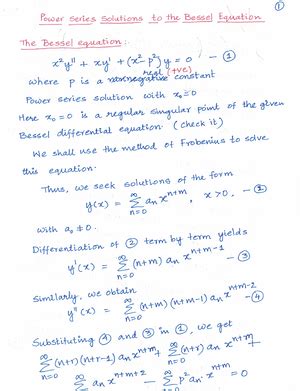 ①
Power series Solutions to the Bessel Equation
The Bessel equation:
x²y'' + xy' + (x² - p²)y = 0 - ①
real (+ve)
where p is a nonnegative constant
Power series solution with x₀ = 0
Here x₀ = 0 is a regular singular point of the given
Bessel differential equation. (check it)
We shall use the method of Frobenius to solve
this equation.
Thus, we seek solutions of the form
y(x) = ∞∑n=0 aₙ xⁿ⁺ᵐ, x > 0. - ②
with a₀ ≠ 0.
Differentiation of ② term by term yields
y'(x) = ∞∑n=0 (n+m) aₙ xⁿ⁺ᵐ⁻¹ - ③
Similarly, we obtain
y''(x) = ∞∑n=0 (n+m)(n+m-1) aₙ xⁿ⁺ᵐ⁻² - ④
Substituting ④ and ③ in ①, we get
∞∑n=0 (n+r)(n+r-1) aₙ xⁿ⁺ᵐ + ∞∑n=0 (n+r) aₙ xⁿ⁺ᵐ +
∞∑n=0 aₙ xⁿ⁺ᵐ⁺² - ∞∑n=0 p² aₙ xⁿ⁺ᵐ = 0